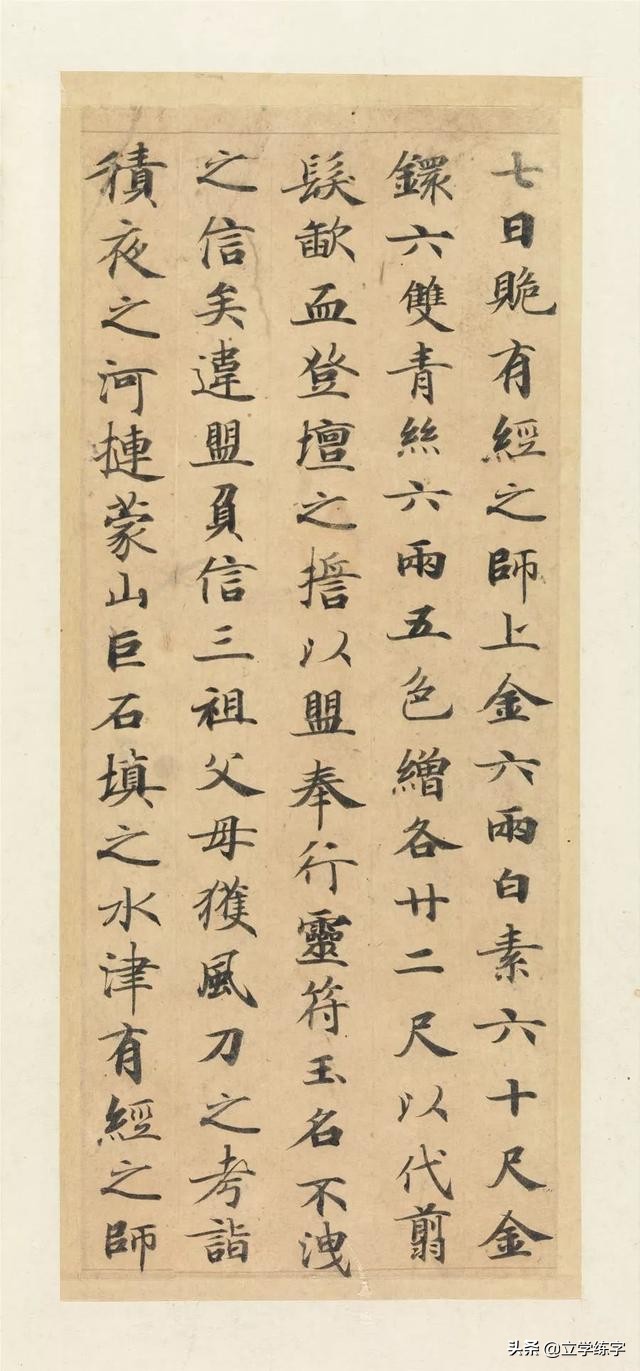 七日貱有經之師上金六兩白素六十尺金
鐶六雙青絲六兩五色繒各廿二尺以代翦
髮歃血登壇之誓以盟奉行靈符玉名不洩
之信矣違盟負信三祖父母獲風刀之考詣
積夜之河摙蒙山巨石填之水津有經之師
头条 @立学练字